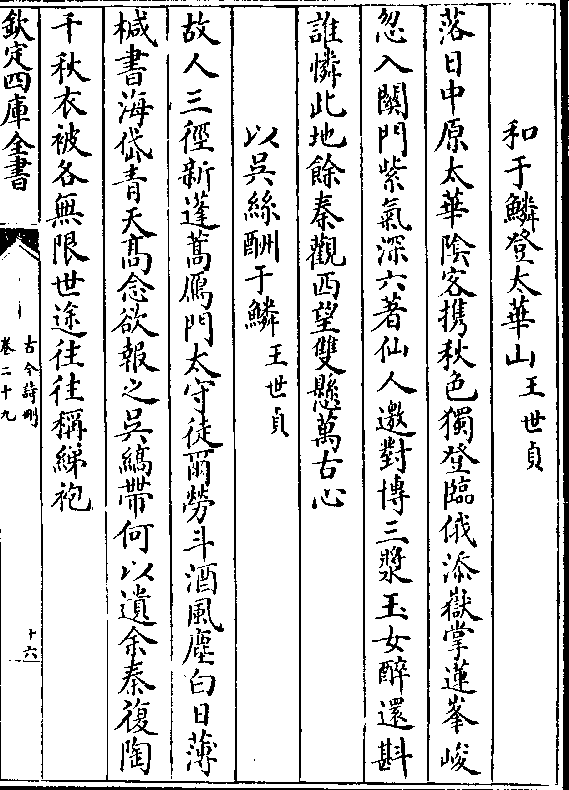 和于鱗登太華山王世貞
落日中原太華陰客攜秋色獨登臨俄添嶽掌蓮峯峻
忽入關門紫氣深六著仙人邀對博三漿玉女醉還斟
誰憐此地餘秦觀西望雙懸萬古心
以吳絲酬于鱗王世貞
故人三徑新蓬蒿鴈門太守徒爾勞斗酒風塵白日薄
椷書海岱青天髙念欲報之吳縞帶何以遺余秦復陶
千秋衣被各無限世途往往稱綈袍
欽定四庫全書
古今詩刪
卷二十九
十六